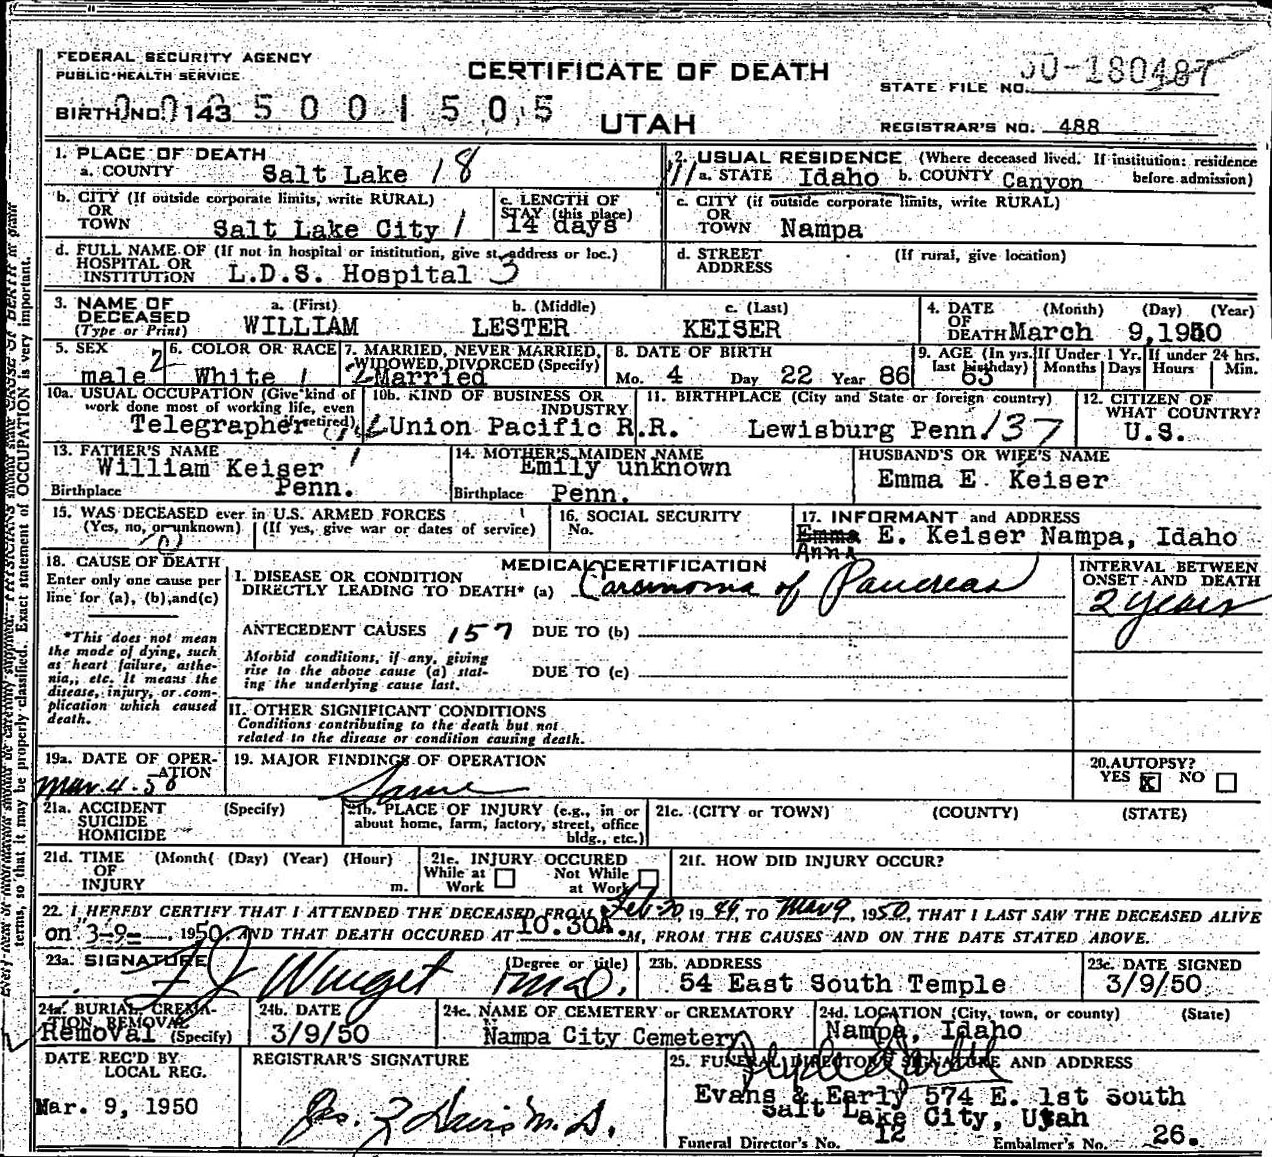 FEDERAL SECURITY AGENCY
PUBLIC HEALTH SERVICE
CERTIFICATE OF DEATH
STATE FILE NO. 50-180487
BIRTH NO. 143 5 0 0 1 5 0 5
UTAH
REGISTRAR'S NO. 488
1. PLACE OF DEATH
a. COUNTY Salt Lake 18
2. USUAL RESIDENCE (Where deceased lived. If institution: residence before admission)
11 a. STATE Idaho b. COUNTY Canyon
b. CITY (If outside corporate limits, write RURAL) OR TOWN Salt Lake City 1
c. LENGTH OF STAY (this place) 14 days
c. CITY (if outside corporate limits, write RURAL) OR TOWN Nampa
d. FULL NAME OF (If not in hospital or institution, give st. address or loc.) HOSPITAL OR INSTITUTION L.D.S. Hospital 3
d. STREET ADDRESS (If rural, give location)
3. NAME OF DECEASED (Type or Print)
a. (First) WILLIAM b. (Middle) LESTER c. (Last) KEISER
4. DATE OF DEATH (Month) (Day) (Year) March 9, 1950
5. SEX male 2
6. COLOR OR RACE White 1
7. MARRIED, NEVER MARRIED, WIDOWED, DIVORCED (Specify) Married
8. DATE OF BIRTH Mo. 4 Day 22 Year 86
9. AGE (In yrs. last birthday) 63 If Under 1 Yr. Months Days If under 24 hrs. Hours Min.
10a. USUAL OCCUPATION (Give kind of work done most of working life, even if retired) Telegrapher
10b. KIND OF BUSINESS OR INDUSTRY Union Pacific R.R.
11. BIRTHPLACE (City and State or foreign country) Lewisburg Penn. 137
12. CITIZEN OF WHAT COUNTRY? U.S.
13. FATHER'S NAME William Keiser
Birthplace Penn.
14. MOTHER'S MAIDEN NAME Emily unknown
Birthplace Penn.
HUSBAND'S OR WIFE'S NAME
Emma E. Keiser
15. WAS DECEASED ever in U.S. ARMED FORCES
(Yes, no, or unknown) (If yes, give war or dates of service)
16. SOCIAL SECURITY No.
17. INFORMANT and ADDRESS
Emma E. Keiser Nampa, Idaho
Anna
18. CAUSE OF DEATH
Enter only one cause per line for (a), (b), and (c)
*This does not mean the mode of dying, such as heart failure, asthenia, etc. It means the disease, injury, or complication which caused death.
MEDICAL CERTIFICATION
I. DISEASE OR CONDITION DIRECTLY LEADING TO DEATH* (a) Carsinoma of Pancreas
INTERVAL BETWEEN ONSET AND DEATH
2 years
ANTECEDENT CAUSES 157 DUE TO (b)
Morbid conditions, if any, giving rise to the above cause (a) stating the underlying cause last.
DUE TO (c)
II. OTHER SIGNIFICANT CONDITIONS
Conditions contributing to the death but not related to the disease or condition causing death.
19a. DATE OF OPERATION
Mar. 4-50
19. MAJOR FINDINGS OF OPERATION
Same
20. AUTOPSY?
YES X NO
21a. ACCIDENT SUICIDE HOMICIDE (Specify)
21b. PLACE OF INJURY (e.g., in or about home, farm, factory, street, office bldg., etc.)
21c. (CITY or TOWN) (COUNTY) (STATE)
21d. TIME OF INJURY (Month) (Day) (Year) (Hour) m.
21e. INJURY OCCURED While at Work Not While at Work
21f. HOW DID INJURY OCCUR?
22. I HEREBY CERTIFY THAT I ATTENDED THE DECEASED FROM Feb-20, 1949, TO Mar 9, 1950, THAT I LAST SAW THE DECEASED ALIVE
on 3-9-, 1950, AND THAT DEATH OCCURED AT 10.30A.M, FROM THE CAUSES AND ON THE DATE STATED ABOVE.
23a. SIGNATURE (Degree or title)
M.D.
23b. ADDRESS
54 East South Temple
23c. DATE SIGNED
3/9/50
24a. BURIAL, CREMATION, REMOVAL (Specify) Removal
24b. DATE
3/9/50
24c. NAME OF CEMETERY OR CREMATORY
Nampa City Cemetery
24d. LOCATION (City, town, or county) (State)
Nampa, Idaho
DATE REC'D BY LOCAL REG.
Mar. 9, 1950
REGISTRAR'S SIGNATURE
25. FUNERAL DIRECTOR'S SIGNATURE AND ADDRESS
Evans & Early 574 E. 1st South
Salt Lake City, Utah
Funeral Director's No. 12 Embalmer's No. 26.